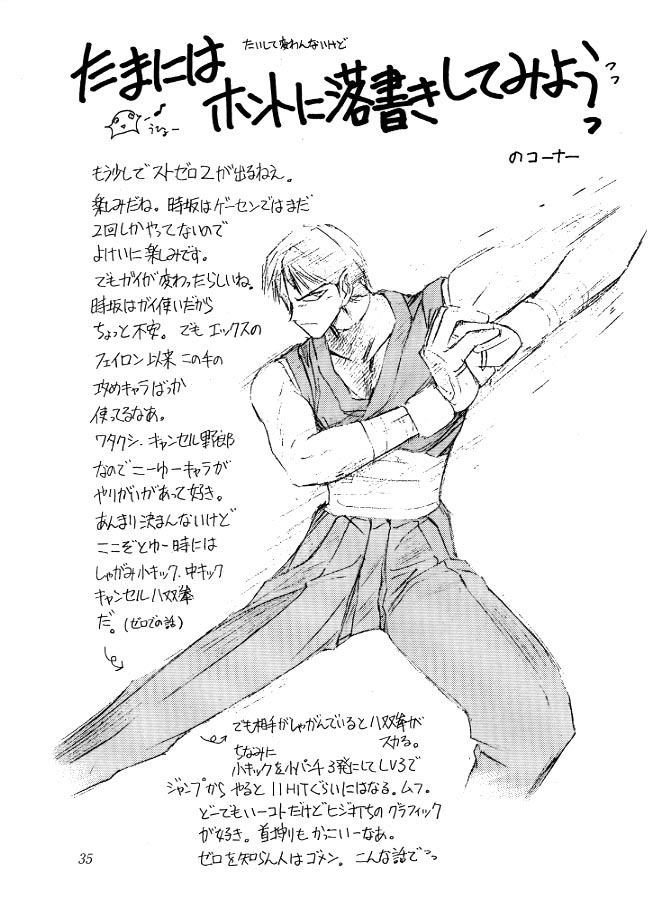 たいして変わんないけど
たまには
ホントに落書きしてみようっ
うひょー
のコーナー
もう少しでストゼロ2が出るねえ。
楽しみだね。時坂はゲーセンではまだ
2回しかやってないので
よけいに楽しみです。
でもガイが変わったらしいね。
時坂はガイ使いだから
ちょっと不安。でもエックスの
フェイロン以来この手の
攻めキャラばっか
使ってるなあ。
ワタクシ、キャンセル野郎
なのでこーゆーキャラが
やりがいがあって好き。
あんまり決まんないけど
ここぞとゆー時には
しゃがみ小キック、中キック
キャンセル八双拳
だ。(ゼロでの話)
でも相手がしゃがんでいると八双拳が
スカる。
ちなみに
小キックを小パンチ3発にしてLV3で
ジャンプからやると11HITぐらいにはなる。ムフ。
どーでもいーコトだけどヒジ打ちのグラフィック
が好き。首抑りもかっこいーなあ。
ゼロを知らん人はゴメン。こんな話でっ
35